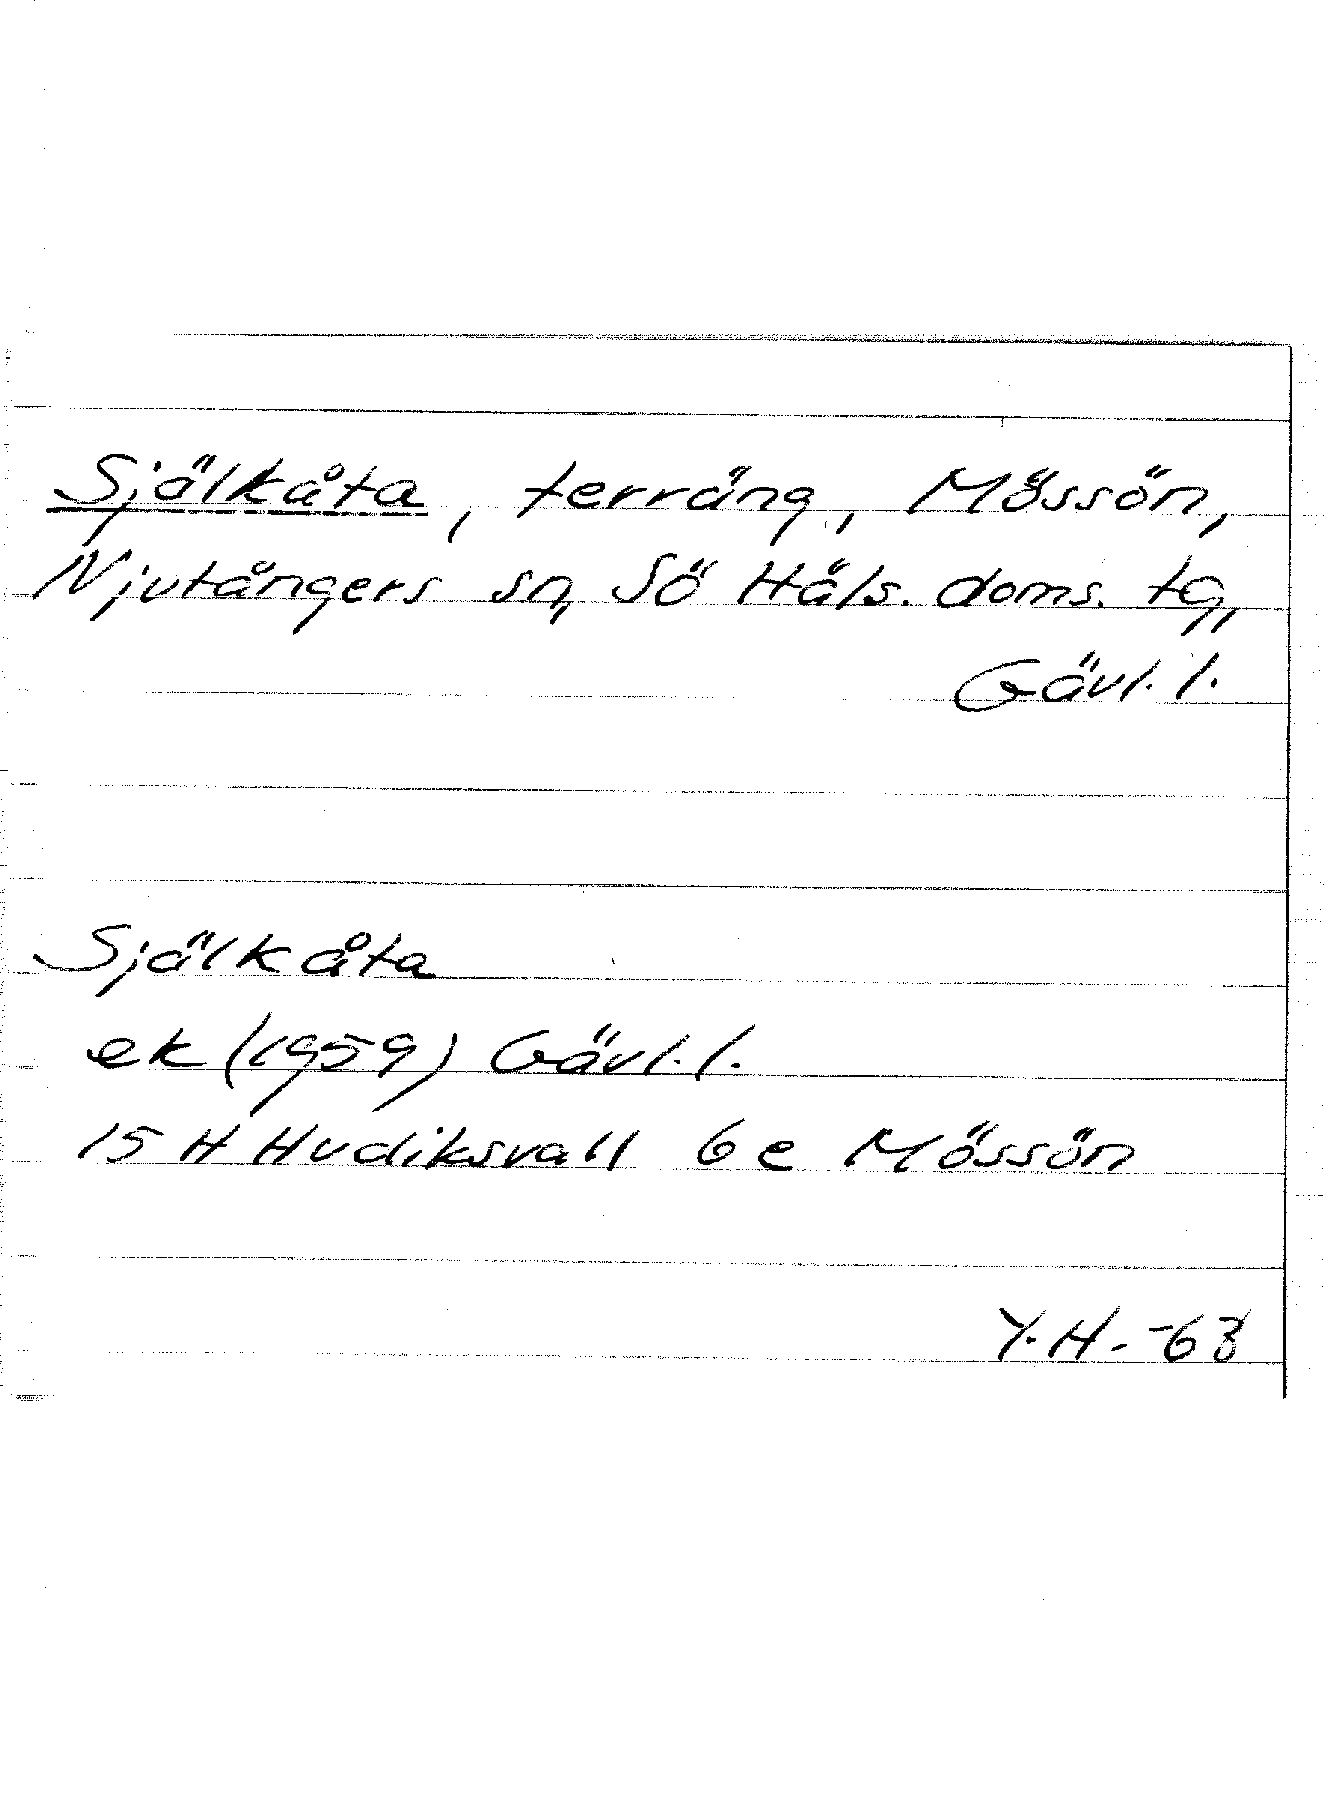 Själkåta, terräng, Mössön,
Njutångers sn, Sö Häls. doms. tg,
Gävl. l.
Själkåta
ek (1959) Gävl. l.
15 H Hudiksvall 6 e Mössön
Y. H. -63